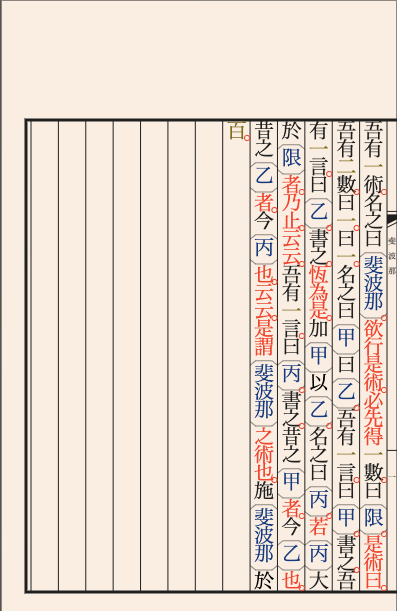 斐波那
一
吾有一術。名之曰斐波那。欲行是術。必先得一數曰限。是術曰。
吾有二數。曰一。曰一。名之曰甲曰乙。吾有一言。曰甲。書之。吾
有一言。曰乙。書之。恆為是。加甲以乙。名之曰丙。若丙大
於限者乃止。云云。吾有一言。曰丙。書之。昔之甲者。今乙也。
昔之乙者。今丙也。云云。是謂斐波那之術也。施斐波那於
百。